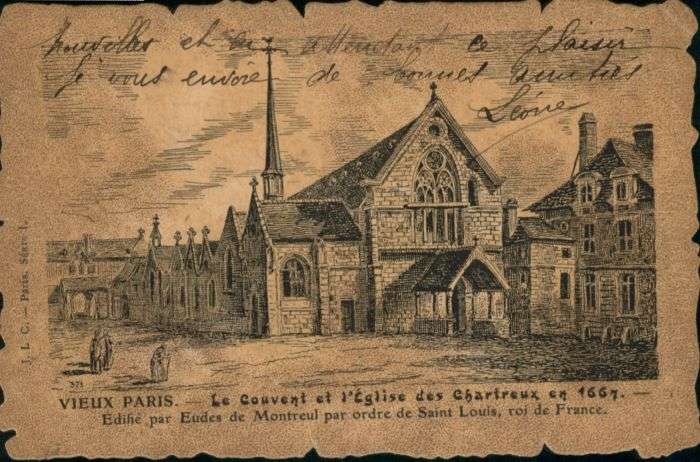 nouvelles et en attendant ce plaisir
je vous envoie de bonnes amitiés
Léonie
J. L. C. — Paris. Série 1.
371
VIEUX PARIS. — Le Couvent et l'Église des Chartreux en 1667. —
Edifié par Eudes de Montreul par ordre de Saint Louis, roi de France.